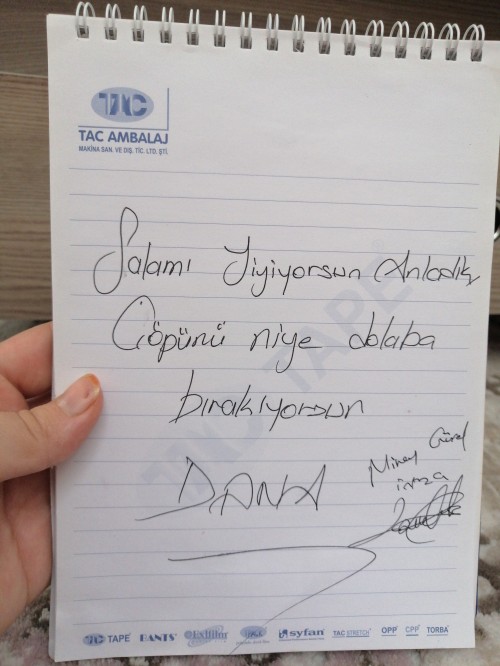 TAC
TAC AMBALAJ
MAKİNA SAN. VE DIŞ. TİC. LTD. ŞTİ.
Salamı Yiyiyorsun Anladık
Çöpünü niye dolaba
bırakıyorsun
DANA
imza
TAC TAPE
TAC TAPE BANTS syfan TAC STRETCH OPP CPP TORBA